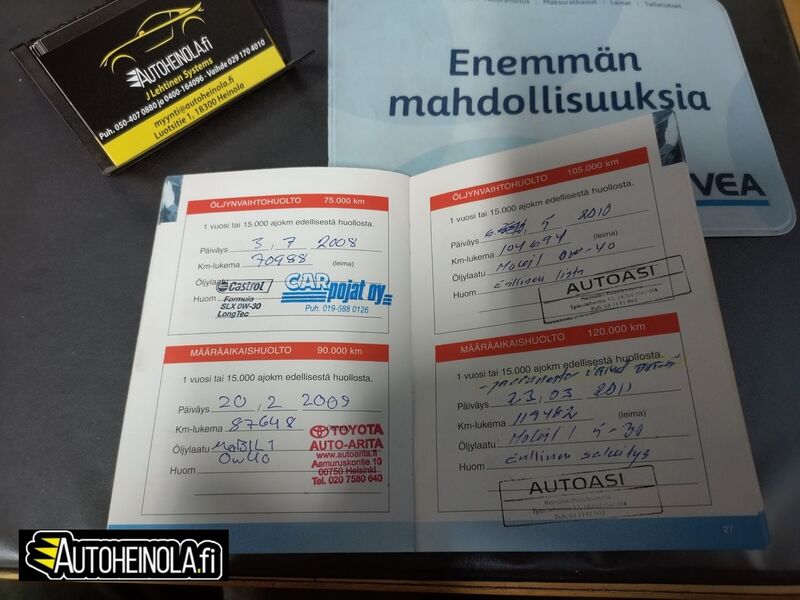 AUTOHEINOLA.fi
J Lehtinen Systems
Puh. 050-407 0880 ja 0400-164096 - Vaihde 029 170 4010
myynti@autoheinola.fi
Luotsitie 1, 18300 Heinola
Maksuratkaisut | Lainat | Talletukset
Enemmän
mahdollisuuksia
VEA
ÖLJYNVAIHTOHUOLTO 75.000 km
1 vuosi tai 15.000 ajokm edellisestä huollosta.
Päiväys 3, 7 2008
Km-lukema 70988 (leima)
Öljylaatu Castrol
Huom Formula
SLX 0W-30
LongTec
CAR
pojat oy
Puh. 019-688 0126
MÄÄRÄAIKAISHUOLTO 90.000 km
1 vuosi tai 15.000 ajokm edellisestä huollosta.
Päiväys 20, 2 2009
Km-lukema 87648 (leima)
Öljylaatu MOBIL 1
0W40
Huom
TOYOTA
AUTO-ARITA
www.autoarita.fi
Aamuruskontie 10
00750 Helsinki
Tel. 020 7580 640
ÖLJYNVAIHTOHUOLTO 105.000 km
1 vuosi tai 15.000 ajokm edellisestä huollosta.
Päiväys 5 2010
Km-lukema 104694 (leima)
Öljylaatu Mobil 0W-40
Huom Erillinen lista
AUTOASI
MÄÄRÄAIKAISHUOLTO 120.000 km
1 vuosi tai 15.000 ajokm edellisestä huollosta.
Päiväys 23, 03 2011
Km-lukema 119482 (leima)
Öljylaatu Mobil 1 5-30
Huom Erillinen selvitys
AUTOASI
27
AUTOHEINOLA.fi